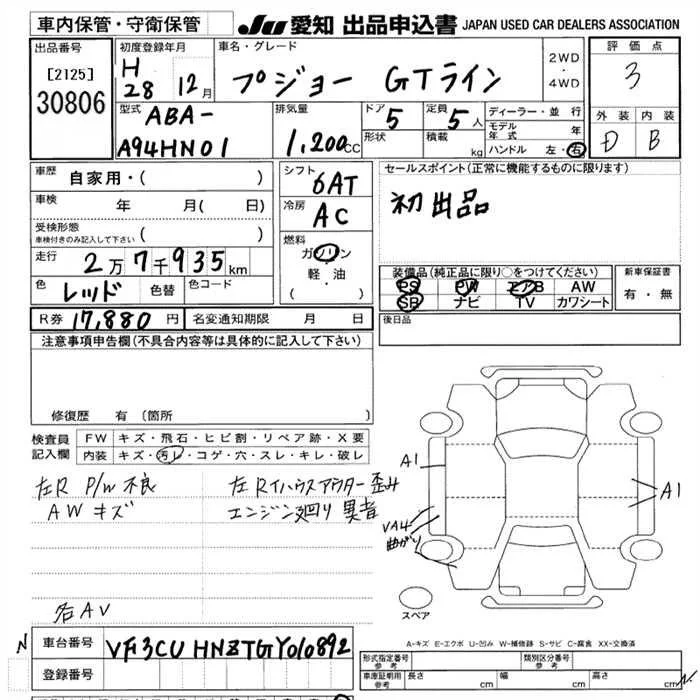 車内保管・守衛保管
JU 愛知 出品申込書 JAPAN USED CAR DEALERS ASSOCIATION
出品番号
[2125]
30806
初度登録年月
H
28 12月
車名・グレード
プジョー GTライン
2WD
・
4WD
評価点
3
外装 内装
D B
型式
ABA-
A94HN01
排気量
1,200cc
ドア
5
定員
5人
形状
積載
kg
ディーラー・並行
モデル
年式
年
ハンドル 左・右
車歴
自家用・( )
車検
年 月( 日)
受検形態
車検付きのみ記入して下さい
( )
走行
2万7千935km
色
レッド
色替
色コード
シフト
6AT
冷房
AC
燃料
ガソリン
軽・油
( ・ )
セールスポイント(正常に機能するものに限ります)
初出品
装備品(純正品に限り○をつけてください)
PS PW エアB AW
SR ナビ TV カワシート
新車保証書
有・無
R券 17,880円
名変通知期限 月 日
後日品
注意事項申告欄(不具合内容等は具体的に記入して下さい)
修復歴 有(箇所
検査員
記入欄
FW キズ・飛石・ヒビ割・リペア跡・X要
内装 キズ・汚レ・コゲ・穴・スレ・キレ・破レ
左R P/W 不良
AW キズ
左Rインハウスアウター歪み
エンジン廻り異音
名AV
A1
A1
VA4
曲がり
スペア
A-キズ E-エクボ U-凹み W-補修跡 S-サビ C-腐食 XX-交換済
N
車台番号
VF3CUHNZTGY010892
登録番号
形式指定番号
参考
類別区分番号
参考
車庫証明用
参考
長さ cm
幅 cm
高さ cm